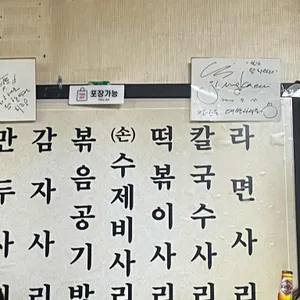 포장가능
라면사리
칼국수사리
떡볶이사리
(손)수제비사리
볶음공기밥
감자사리
만두사리